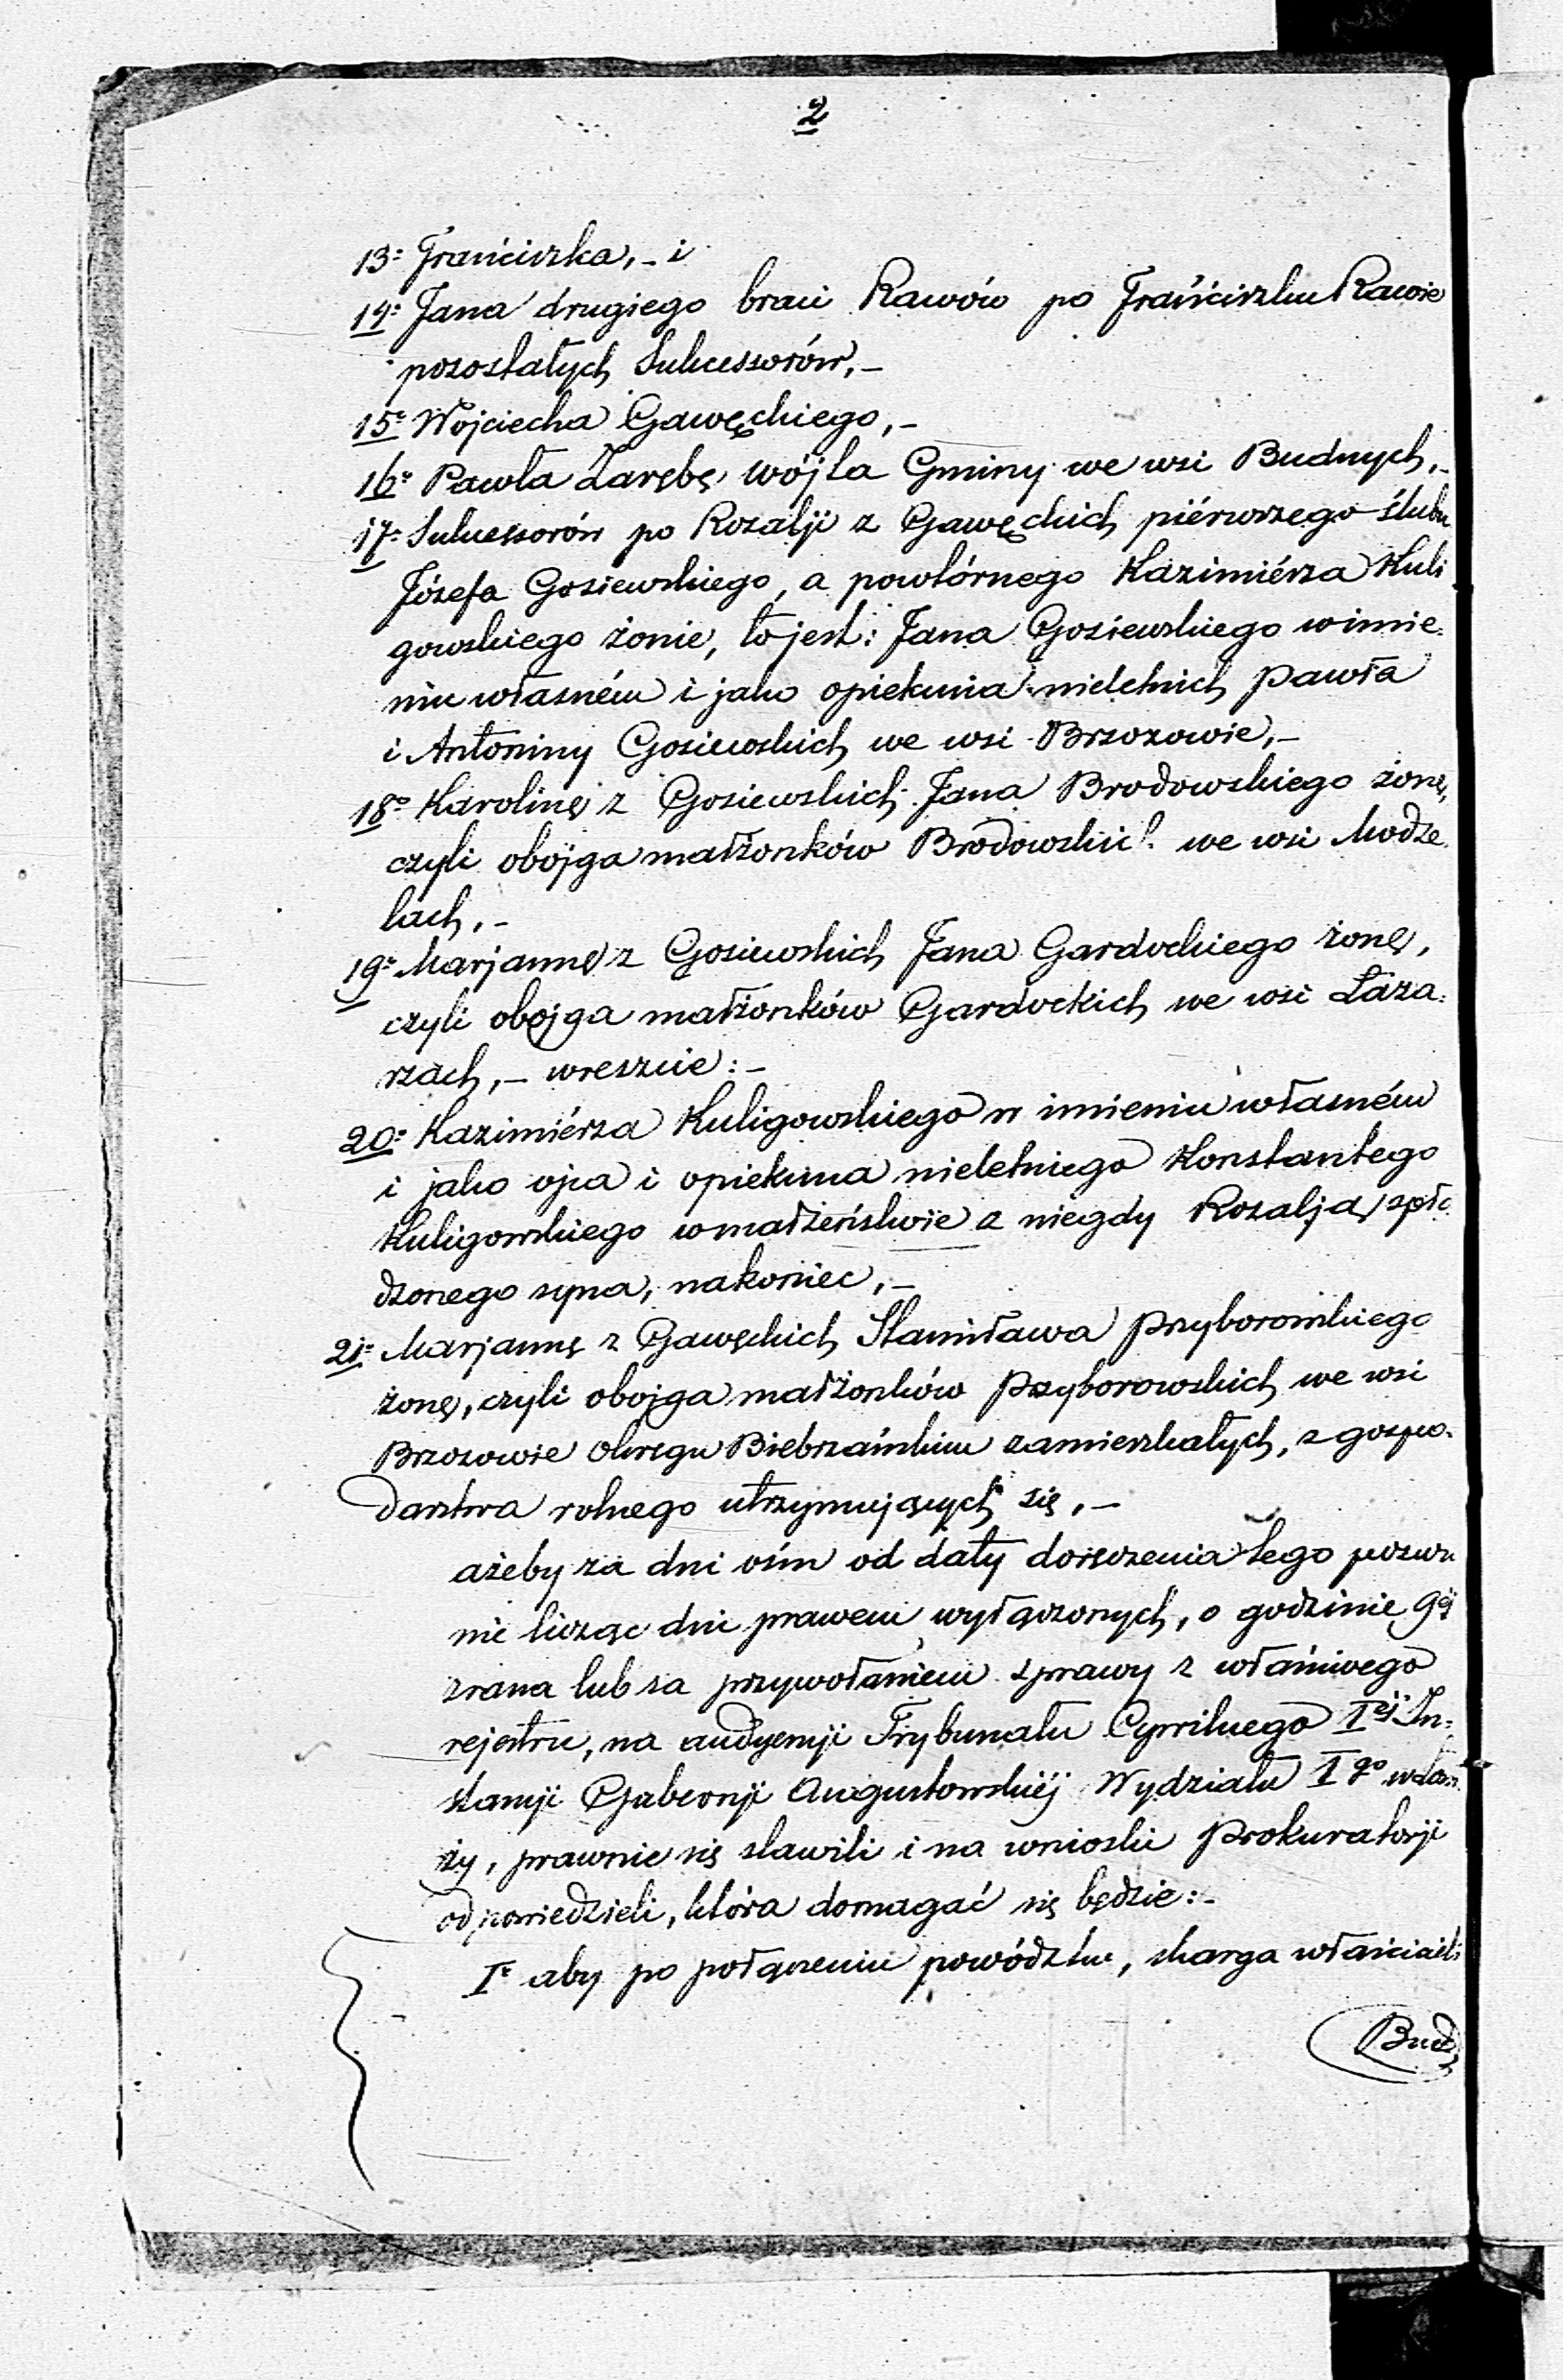 2
13º Franciszka, - i
14º Jana drugiego braci Rawów po Franciszku Rawie
pozostałych Sukcessorów, -
15º Wojciecha Gawęckiego, -
16º Pawła Zarębę wójta Gminy we wsi Budnych, -
17º Sukcessorów po Rozalji z Gawęckich piérwszego ślubu
Józefa Gosiewskiego, a powtórnego Kazimiérza Kuli
gowskiego żonie, to jest: Jana Gosiewskiego w imie-
niu własném i jako opiekuna nieletnich Pawła
i Antoniny Gosiewskich we wsi Brzozowie, -
18º Karolinę z Gosiewskich Jana Brodowskiego żonę,
czyli obojga małżonków Brodowskich we wsi Modze-
lach, -
19º Marjannę z Gosiewskich Jana Gardockiego żonę,
czyli obojga małżonków Gardockich we wsi Łaza-
rzach, - wreszcie: -
20º Kazimiérza Kuligowskiego w imieniu własném
i jako ojca i opiekuna nieletniego Konstantego
Kuligowskiego w małżeństwie z niegdy Rozalją spło
dzonego syna, nakoniec, -
21º Marjannę z Gawęckich Stanisława Przyborowskiego
żonę, czyli obojga małżonków Przyborowskich we wsi
Brzozowie Okręgu Biebrzańskim zamieszkałych, z gospo-
darstwa rolnego utrzymujących się, -
ażeby za dni ośm od daty doręczenia tego pozwu
nie licząc dni prawem wyłączonych, o godzinie 9éj
zrana lub za przywołaniem sprawy z właściwego
rejestru, na audyencji Trybunału Cywilnego Iéj In-
stancji Gubernji Augustowskiéj Wydziału Igo w Łom
ży, prawnie się stawili i na wnioski Prokuratorji
odpowiedzieli, która domagać się będzie: -
Iº aby po połączeniu powództw, skarga właścicieli
Bud